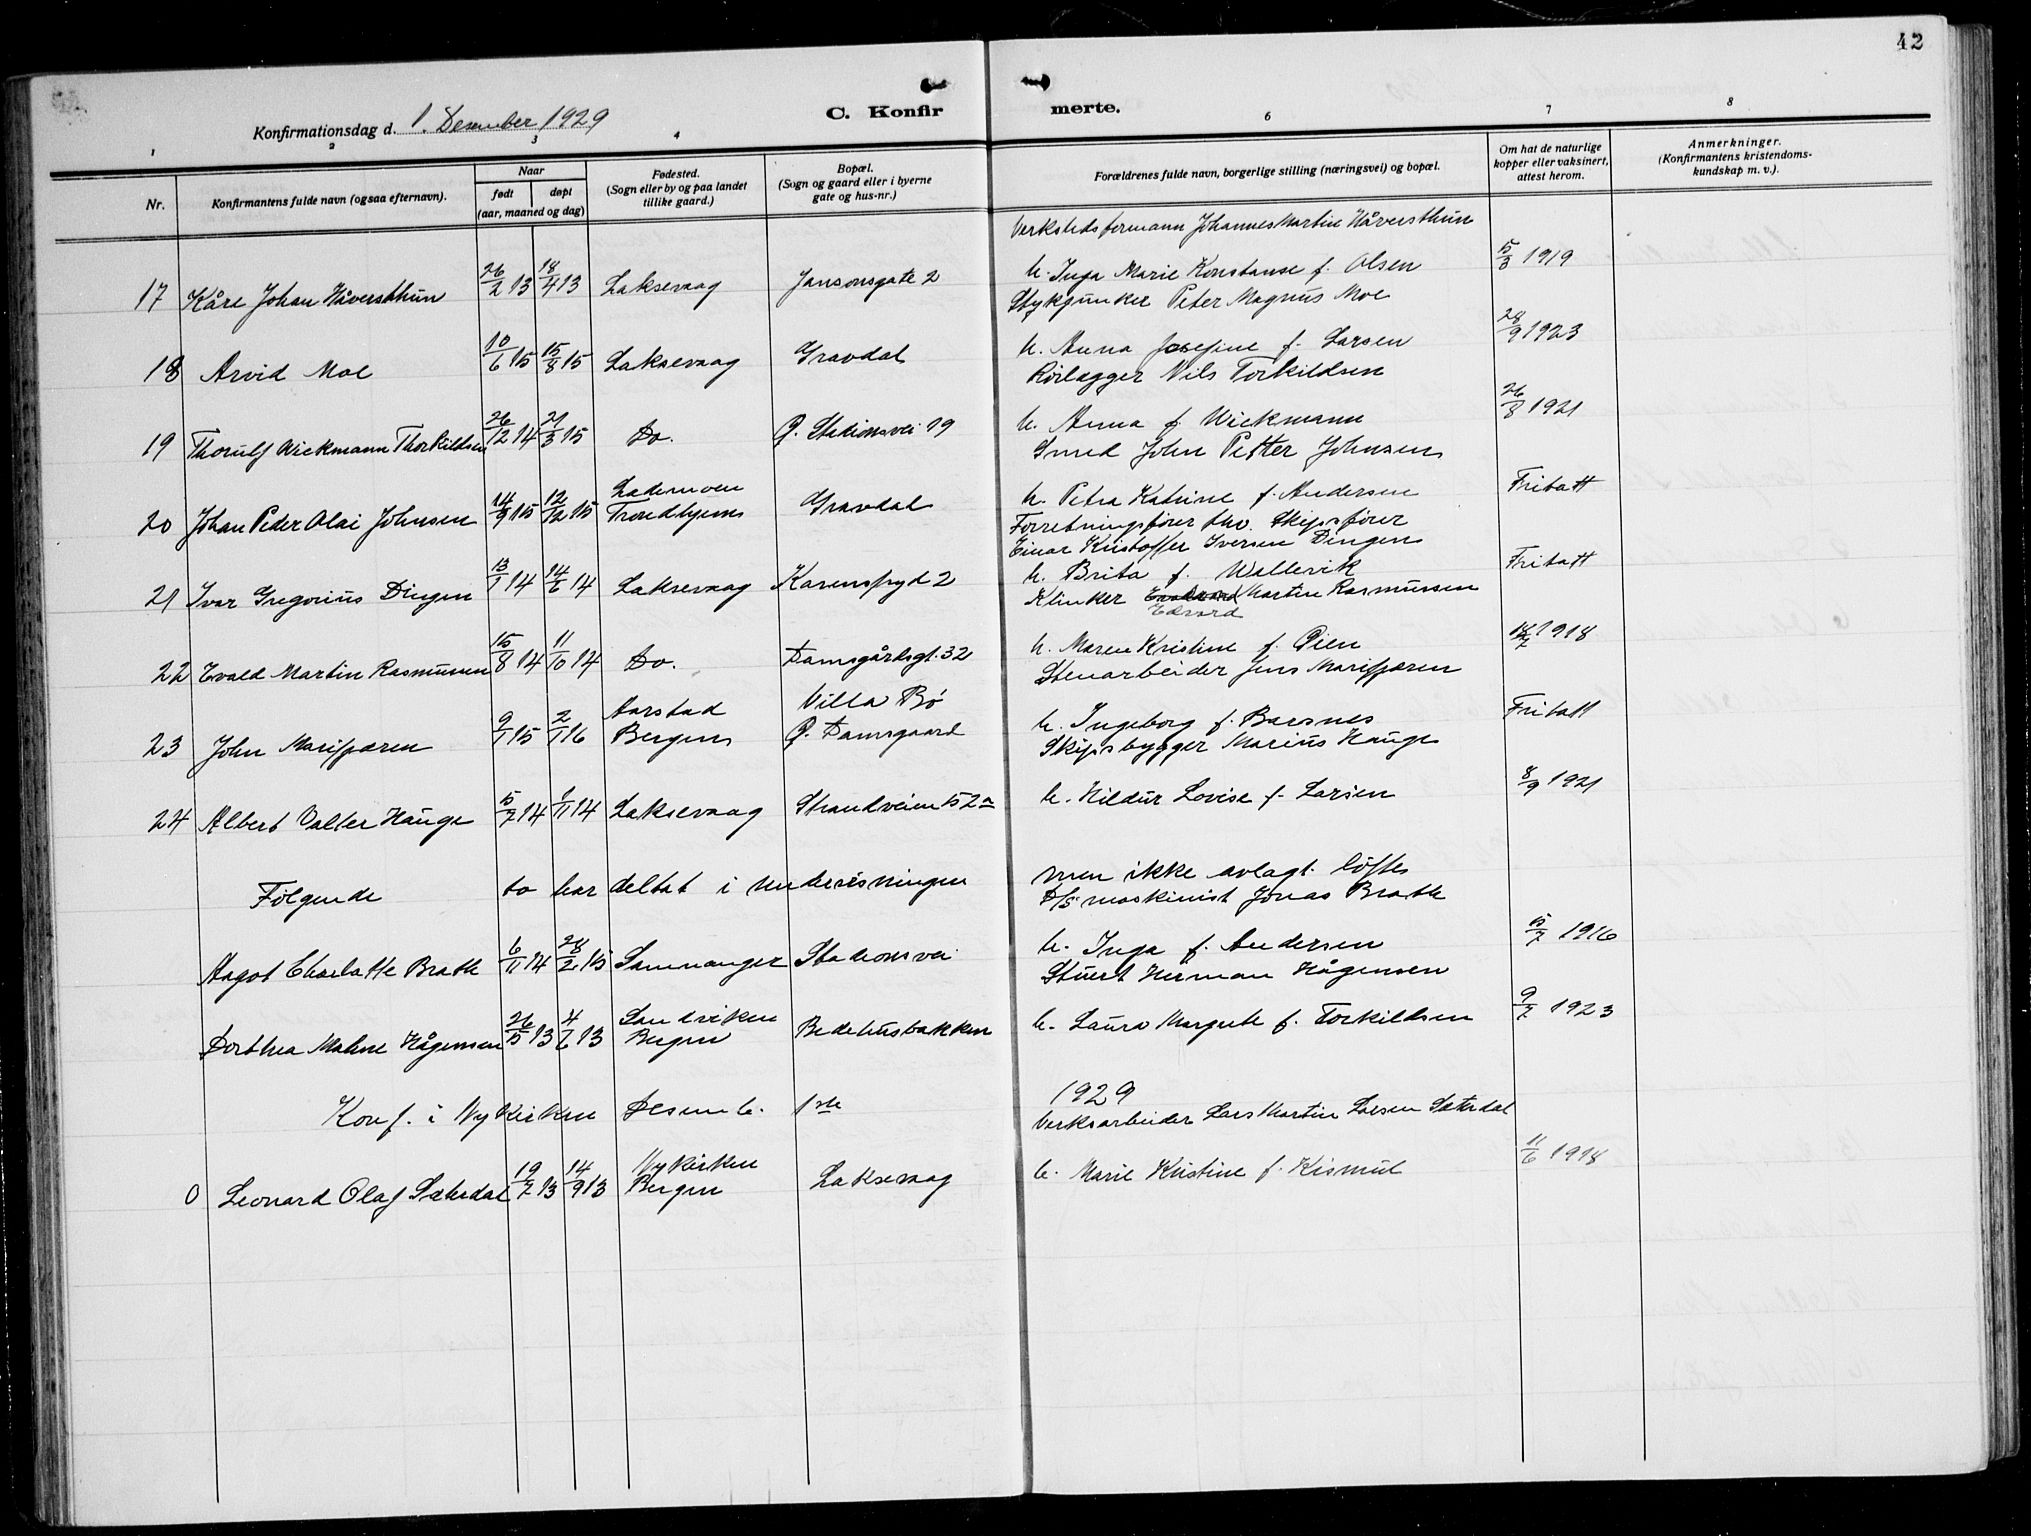 42
Konfirmationsdag d. 1. Desember 1929
C. Konfirmerte.
1 2 3 4 6 7 8
Nr.
Konfirmantens fulde navn (ogsaa efternavn).
Naar
født døpt
(aar, maaned og dag)
Fødested.
(Sogn eller by og paa landet
tillike gaard.)
Bopæl.
(Sogn og gaard eller i byerne
gate og hus-nr.)
Forældrenes fulde navn, borgerlige stilling (næringsvei) og bopæl.
Om hat de naturlige
kopper eller vaksinert,
attest herom.
Anmerkninger.
(Konfirmantens kristendoms-
kundskap m. v.).
Verkstedsformann Johannes Martin Håversthun
17 Kåre Johan Håversthun 26/2 13 18/4 13 Laksevaag Jansonsgate 2 h. Inga Marie Konstanse f. Olsen 15/3 1919
Stykjunker Peter Magnus Moe
18 Arvid Moe 10/6 15 15/8 15 Laksevaag Gravdal h. Anna Josefine f. Larsen 28/9 1923
Rørlægger Nils Torkildsen
19 Thorulf Wickmann Thorkildsen 26/12 14 21/3 15 Do. G. Stationsvei 19 h. Anna f. Wickmann 26/8 1921
Smed John Petter Johnsen
20 Johan Peder Olai Johnsen 14/9 15 12/12 15 Lademoen Trondhjem Gravdal h. Petra Katrine f. Andersen Fritatt
Forretningsfører fhv. Skipsfører
Einar Kristoffer Iversen Dingen
21 Ivar Gregorius Dingen 13/1 14 14/6 14 Laksevaag Karensfryd 2 h. Brita f. Wallevik Fritatt
Klinker Edvard Martin Rasmussen
22 Evald Martin Rasmussen 15/8 14 11/10 14 Do. Damsgårdsgt. 32 h. Maren Kristine f. Øien 18/7 1918
Stenarbeider Jens Marifjæren
23 John Marifjæren 9/1 15 2/1 16 Aarstad Bergen Villa Bø G. Damsgaard h. Ingeborg f. Barsnes Fritatt
Skipsbygger Marius Hauge
24 Albert Valter Hauge 5/7 14 1/11 14 Laksevaag Strandveien 52a h. Hildur Lovise f. Larsen 8/9 1921
Følgende to har deltat i undervisningen men ikke avlagt løfte
D/S maskinist Jonas Brath
Aagot Charlotte Brath 6/11 14 28/2 15 Samnanger Stationsvei h. Inga f. Andersen 5/7 1916
Stuert Herman Hågensen
Dorthea Malene Hågensen 26/5 13 4/6 13 Sandviken Bergen Bedehusbakken h. Laura Margrete f. Torkildsen 9/7 1923
Konf. i Nykirken Desemb. 1ste 1929
Verksarbeider Lars Martin Larsen Sæterdal
0 Leonard Olaf Sæterdal 19/7 13 14/9 13 Nykirken Bergen Laksevaag h. Marie Kristine f. Kismul 11/6 1918